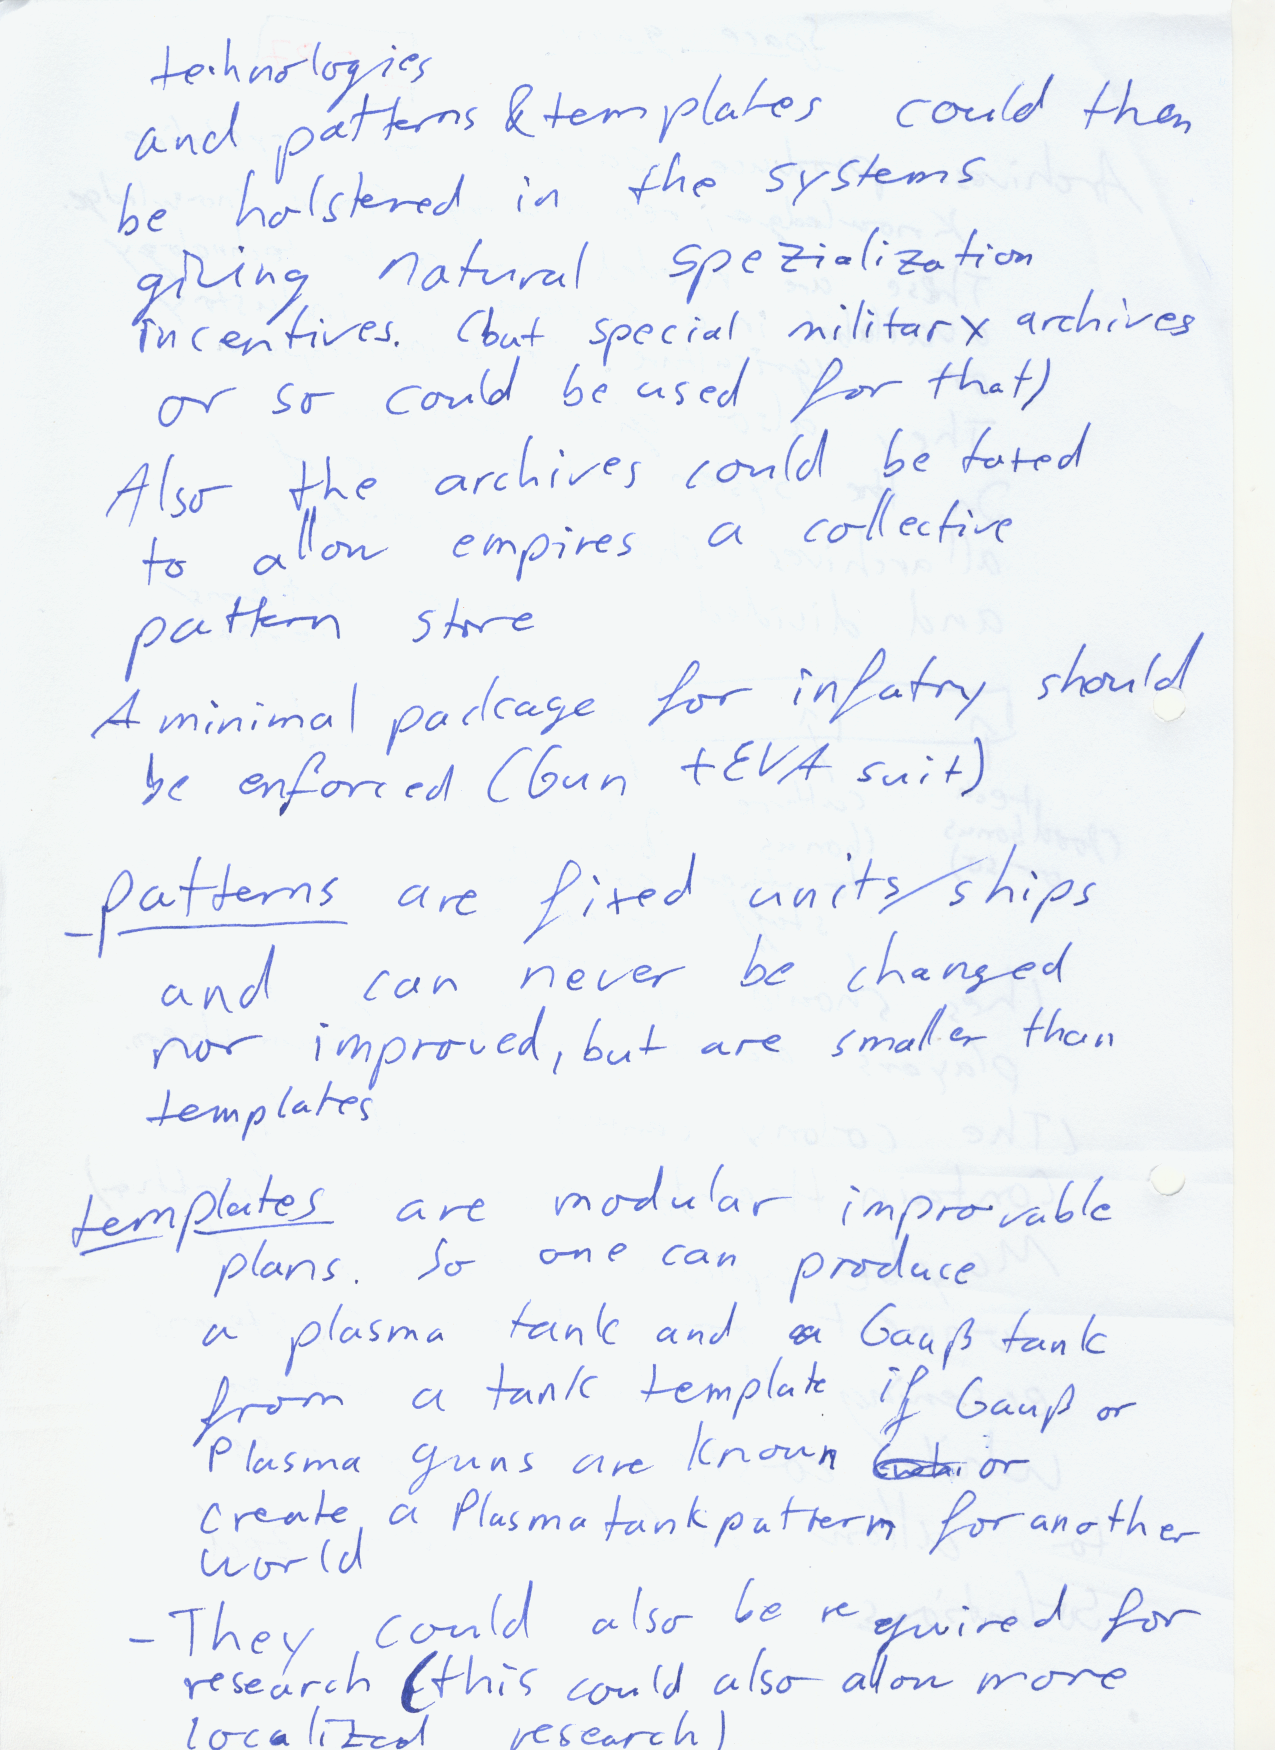 technologies
and patterns & templates could then
be holstered in the systems
giving natural spezialization
incentives. (but special military archives
or so could be used for that)
Also the archives could be taxed
to allow empires a collective
pattern store
A minimal package for infatry should
be enforced (Gun + EVA suit)
- patterns are fixed units/ships
and can never be changed
nor improved, but are smaller than
templates
templates are modular improvable
plans. So one can produce
a plasma tank and a Gauß tank
from a tank template if Gauß or
Plasma guns are known or
create a Plasmatankpattern for another
world
- They could also be required for
research (this could also allow more
localized research)